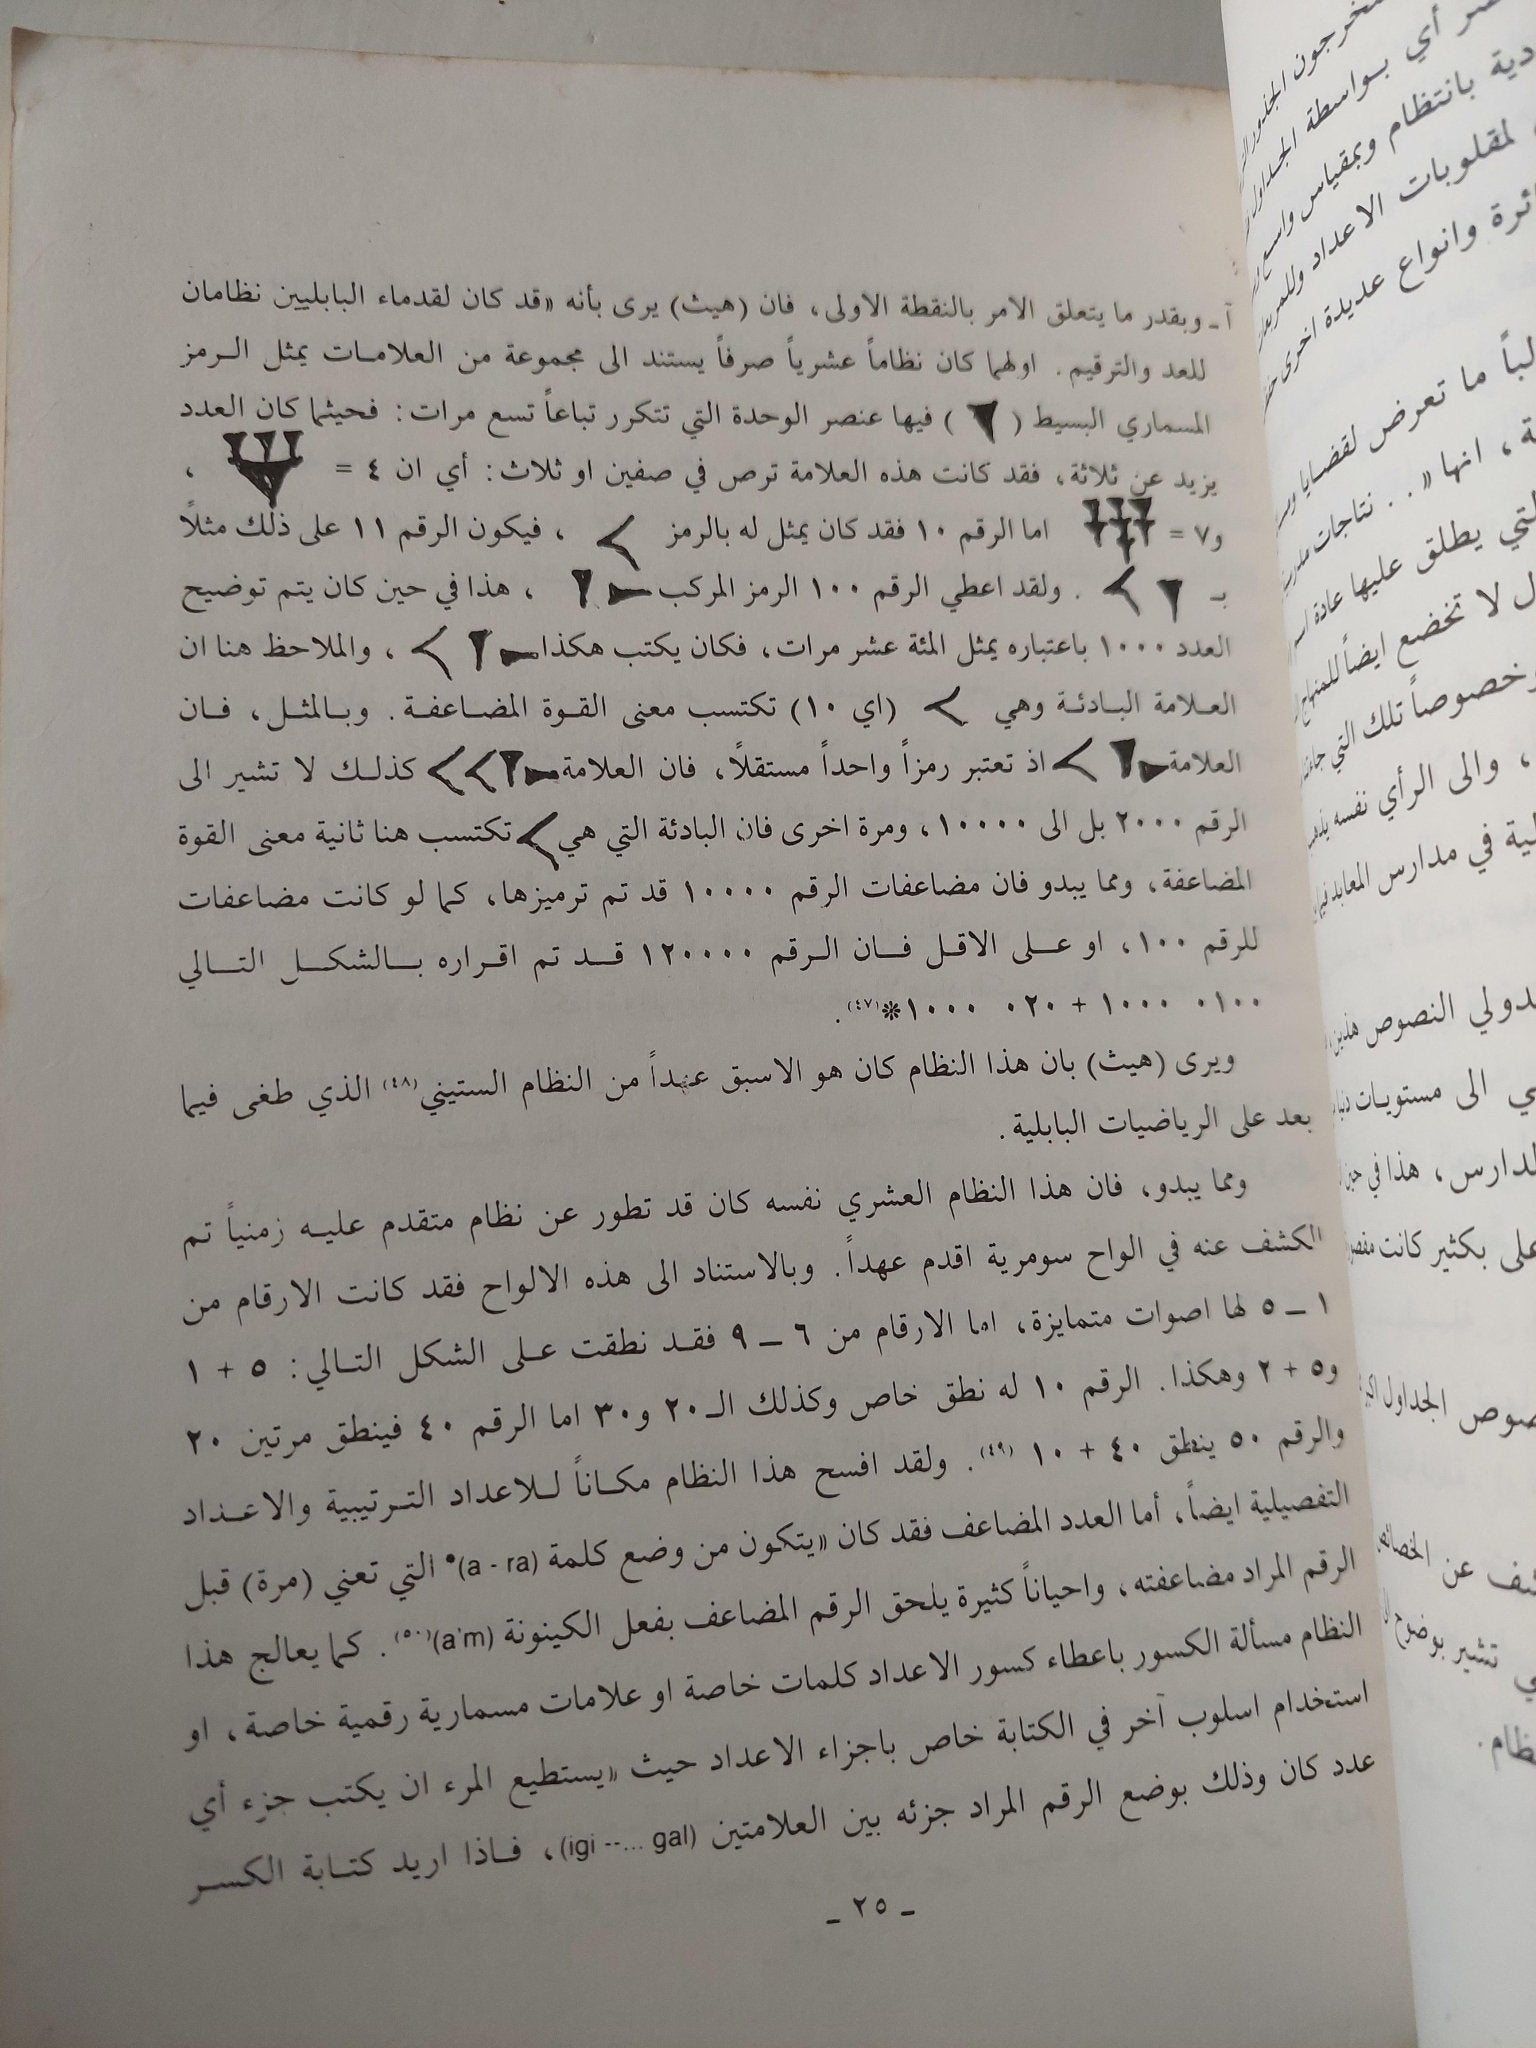 آ ـ وبقدر ما يتعلق الامر بالنقطة الاولى، فان (هيث) يرى بأنه «قد كان لقدماء البابليين نظامان
للعد والترقيم. اولهما كان نظاماً عشرياً صرفاً يستند الى مجموعة من العلامات يمثل الرمز
المسماري البسيط ( 𒁹 ) فيها عنصر الوحدة التي تتكرر تباعاً تسع مرات: فحيثما كان العدد
يزيد عن ثلاثة، فقد كانت هذه العلامة ترص في صفين او ثلاث: أي ان ٤ = ،
و٧ = اما الرقم ١٠ فقد كان يمثل له بالرمز ، فيكون الرقم ١١ على ذلك مثلاً
بـ . ولقد اعطي الرقم ١٠٠ الرمز المركب ، هذا في حين كان يتم توضيح
العدد ١٠٠٠ باعتباره يمثل المئة عشر مرات، فكان يكتب هكذا ، والملاحظ هنا ان
العلامة البادئة وهي (اي ١٠) تكتسب معنى القوة المضاعفة. وبالمثل، فان
العلامة اذ تعتبر رمزاً واحداً مستقلاً، فان العلامة كذلك لا تشير الى
الرقم ٢٠٠٠ بل الى ١٠٠٠٠، ومرة اخرى فان البادئة التي هي تكتسب هنا ثانية معنى القوة
المضاعفة، ومما يبدو فان مضاعفات الرقم ١٠٠٠٠ قد تم ترميزها، كما لو كانت مضاعفات
للرقم ١٠٠، او على الاقل فان الرقم ١٢٠٠٠٠ قد تم اقراره بالشكل التالي
٠١٠٠ ١٠٠٠ + ٠٢٠ ١٠٠٠*(٤٧).
ويرى (هيث) بان هذا النظام كان هو الاسبق عهداً من النظام الستيني(٤٨) الذي طغى فيما
بعد على الرياضيات البابلية.
ومما يبدو، فان هذا النظام العشري نفسه كان قد تطور عن نظام متقدم عليه زمنياً تم
الكشف عنه في الواح سومرية اقدم عهداً. وبالاستناد الى هذه الالواح فقد كانت الارقام من
١ ـ ٥ لها اصوات متمايزة، اما الارقام من ٦ ـ ٩ فقد نطقت على الشكل التالي: ٥ + ١
و٥ + ٢ وهكذا. الرقم ١٠ له نطق خاص وكذلك الـ ٢٠ و٣٠ اما الرقم ٤٠ فينطق مرتين ٢٠
والرقم ٥٠ ينطق ٤٠ + ١٠ (٤٩). ولقد افسح هذا النظام مكاناً للاعداد الترتيبية والاعداد
التفصيلية ايضاً، أما العدد المضاعف فقد كان «يتكون من وضع كلمة (a - ra)• التي تعني (مرة) قبل
الرقم المراد مضاعفته، واحياناً كثيرة يلحق الرقم المضاعف بفعل الكينونة (a'm)(٥٠). كما يعالج هذا
النظام مسألة الكسور باعطاء كسور الاعداد كلمات خاصة او علامات مسمارية رقمية خاصة، او
استخدام اسلوب آخر في الكتابة خاص باجزاء الاعداد حيث «يستطيع المرء ان يكتب جزء أي
عدد كان وذلك بوضع الرقم المراد جزئه بين العلامتين (igi --... gal)، فاذا اريد كتابة الكسر
ـ ٢٥ ـ
أي بواسطة الجداول
بانتظام وبمقياس واسع
لمقلوبات الاعداد
وانواع عديدة اخرى
ما تعرض لقضايا
، انها «.. نتاجات
التي يطلق عليها عادة
لا تخضع ايضاً للمنهاج
وخصوصاً تلك التي
، والى الرأي نفسه
في مدارس المعابد
النصوص هذين
الى مستويات
، هذا في حين
على بكثير كانت
الجداول
عن
تشير بوضوح